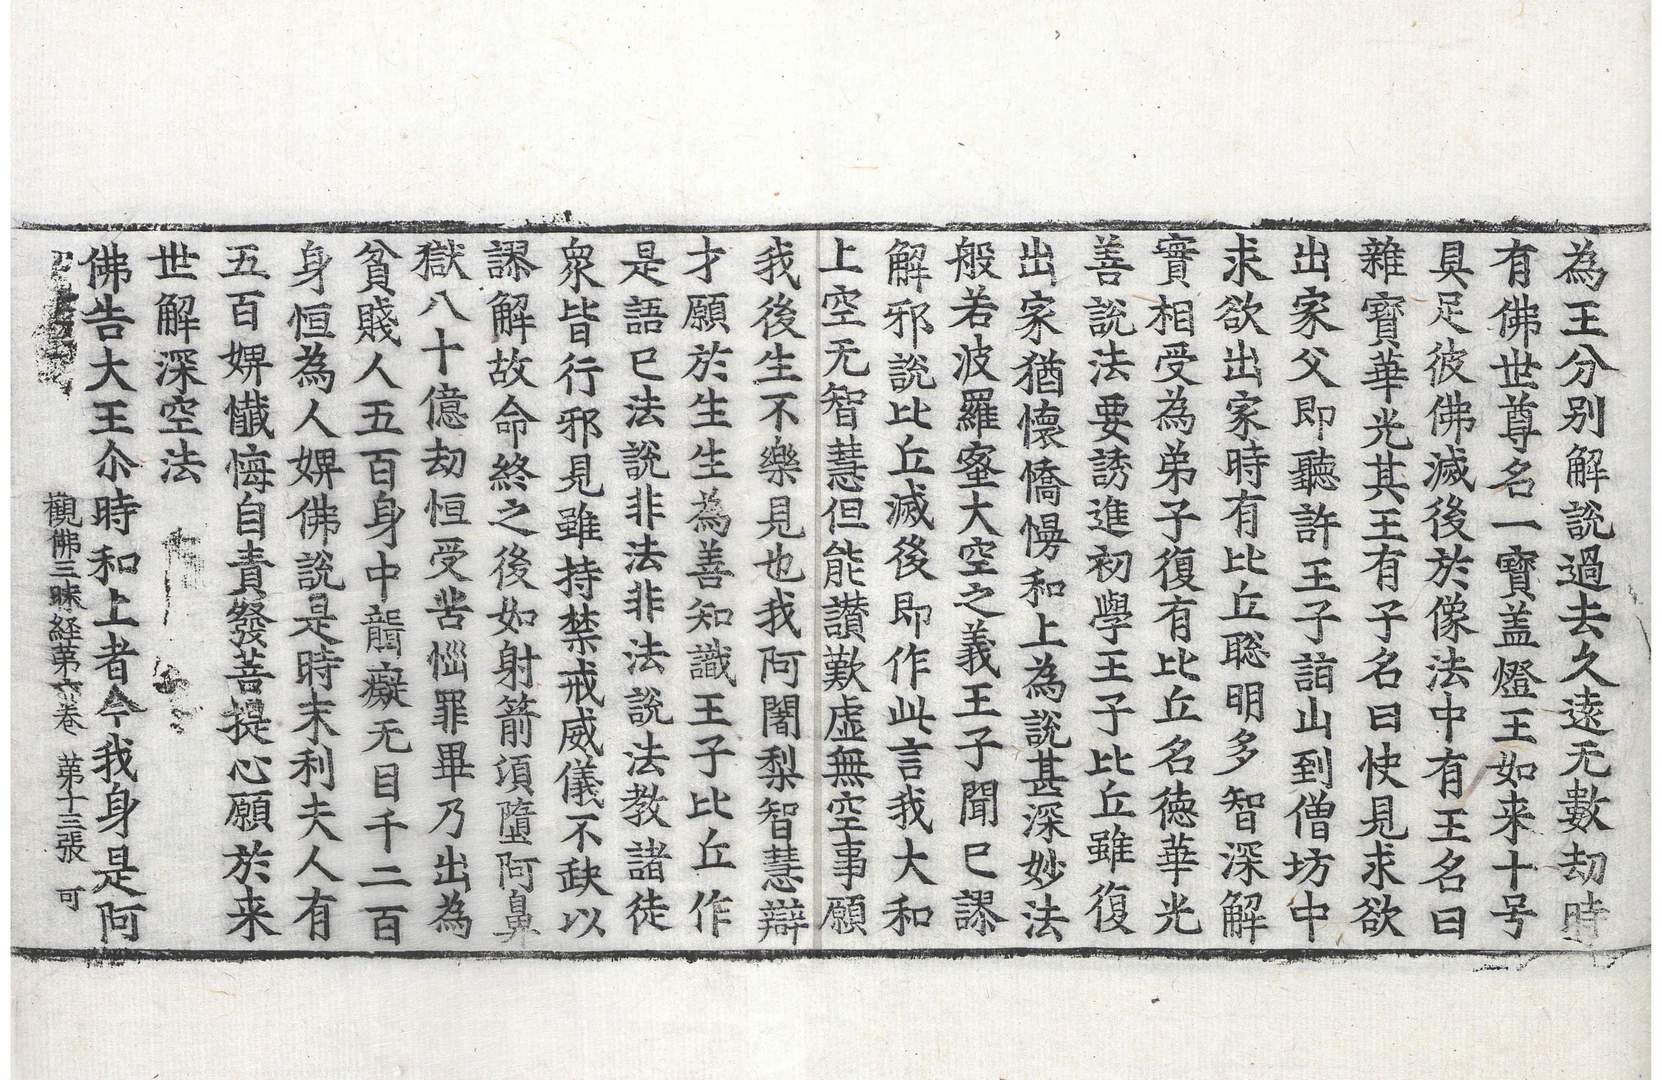 為王分別解說過去久遠无數劫時
有佛世尊名一寶盖燈王如来十号
具足彼佛滅後於像法中有王名曰
雜寶華光其王有子名曰快見求欲
出家父即聽許王子詣山到僧坊中
求欲出家時有比丘聡明多智深解
實相受為弟子復有比丘名德華光
善說法要誘進初學王子比丘雖復
出家猶懷憍慢和上為說甚深妙法
般若波羅蜜大空之義王子聞已謬
解邪說比丘滅後即作此言我大和
上空无智慧但能讃歎虛無空事願
我後生不樂見也我阿闍梨智慧辯
才願於生生為善知識王子比丘作
是語已法說非法非法說法教諸徒
衆皆行邪見雖持禁戒威儀不缺以
謬解故命終之後如射箭湏墮阿鼻
獄八十億劫恒受苦惱罪畢乃出為
貧賤人五百身中聾癡无目千二百
身恒為人婢佛說是時末利夫人有
五百婢懴悔自責發菩提心願於来
世解深空法
佛告大王尒時和上者今我身是阿
觀佛三昧経苐六卷 苐十三張 可